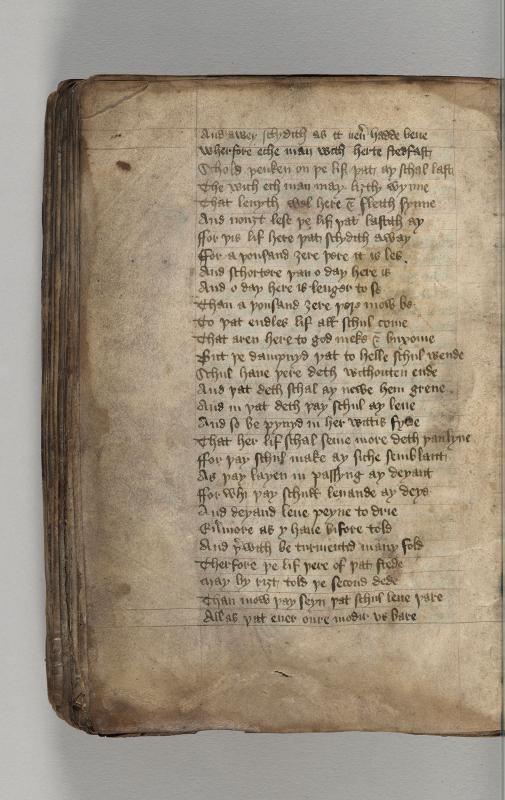 And awey schydith as it neuer hadde bene
Wherfore eche man with herte stedfast
Schold þenken on þe lif þat ay schal last
The wich ech man may liȝtly wynne
That leuyth wel here & fleith synne
And nouȝt lese þe lif þat lastith ay
ffor þis lif here þat schydith away
ffor a þousand ȝere þere it is les
And schortere þan o day here is
And o day here is lenger to se
Than a þousand ȝere þere mow be
To þat endles lif all schul come
That aren here to god meke & buxome
But þe dampnyd þat to helle schul wende
Schul haue þere deth withouten ende
And þat deth schal ay newe hem greue
And in þat deth þay schul ay leue
And so be pynyd in her wittis fyue
That her lif schal seme more deth þan lyue
ffor þay schul make ay siche semblant
As þay layen in passyng ay deyant
ffor whi þay schull leuande ay deye
And deyand leue peyne to drie
Euermore as y haue bifore told
And þerwith be turmentid many fold
Therfore þe lif þere of þat stede
May by riȝt told þe second dede
Than mow þay seyn þat schul leue þare
Allas þat euer oure modir vs bare